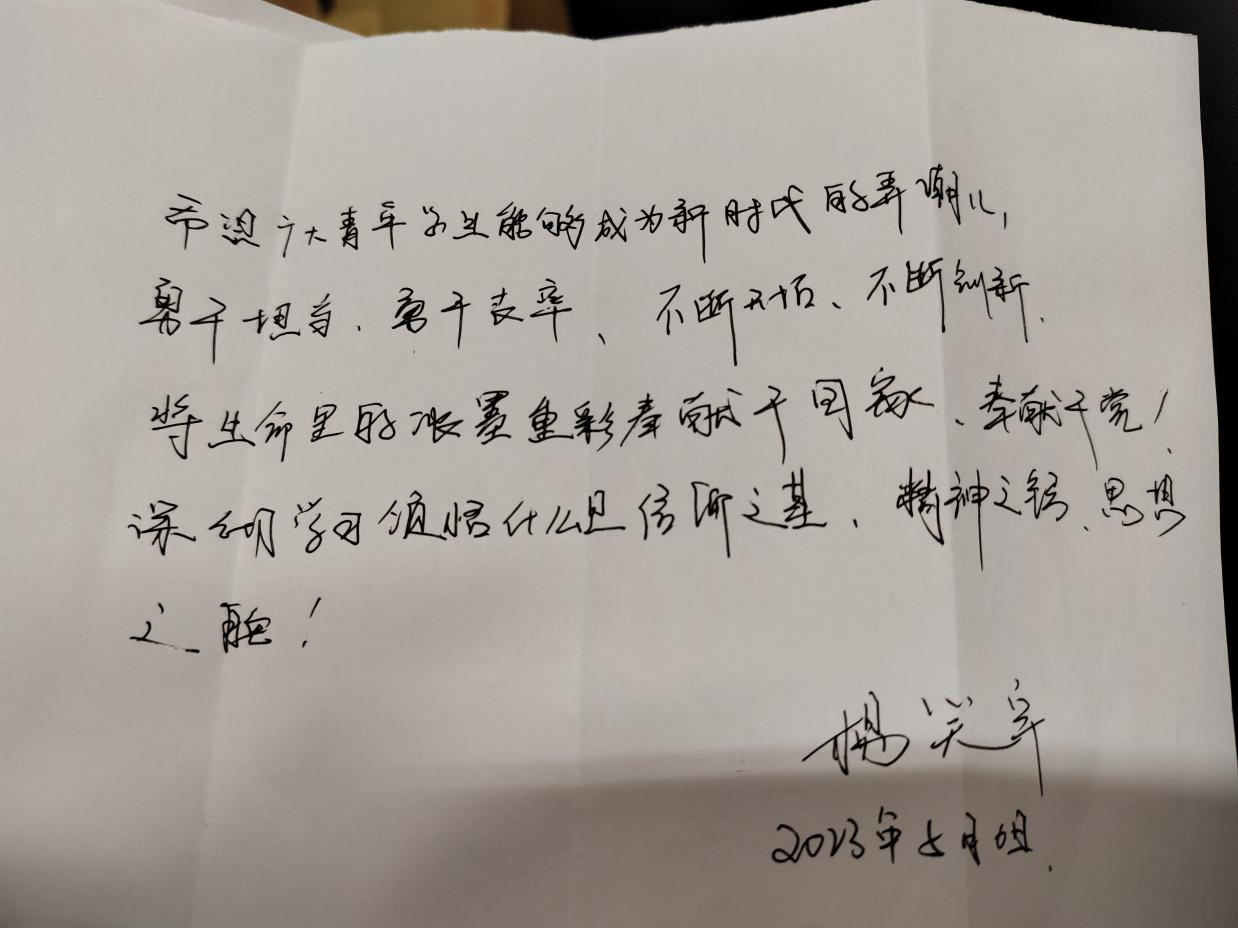 希望广大青年学生能够成为新时代的弄潮儿，
勇于担当、勇于表率、不断开拓、不断创新，
将生命里的浓墨重彩奉献于国家、奉献于党！
深刻学习领悟什么是信仰之基、精神之钙、思想
之舵！
杨笑宇
2023年5月